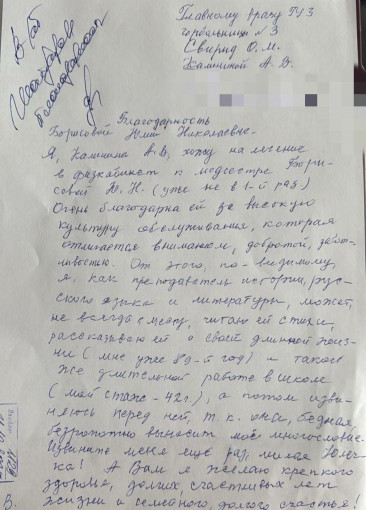 Главному врачу ГУЗ
горбольницы № 3
Свирид О. М.
Калининой А. В.
Благодарность
Борисовой Юлии Николаевне.
Я, Калинина А.В, хожу на лечение
в физкабинет к медсестре Бори-
совой Ю. Н. (уже не в 1-й раз)
Очень благодарна ей за высокую
культуру обслуживания, которая
отличается вниманием, добротой, забот-
ливостью. От этого, по-видимому,
я, как преподаватель истории, рус-
ского языка и литературы, может,
не всегда к месту, читаю ей стихи,
рассказываю ей о своей длинной жиз-
ни (мне уже 89-й год) и такой
же длительной работе в школе
(мой стаж - 42 г.), а потом изви-
няюсь перед ней, т. к. она, бедная,
безропотно выносит моё многословие.
Извините меня ещё раз, милая Юлеч-
ка! А Вам я желаю крепкого
здоровья, долгих счастливых лет
жизни и семейного, долгого счастья!